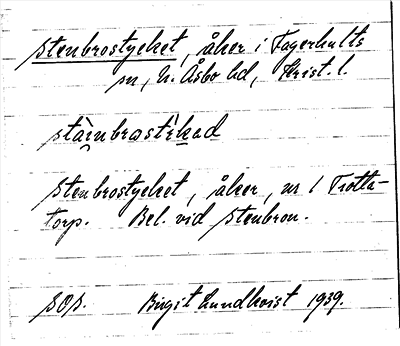 Stenbrostycket, åker i Fagerhults
sn, N. Åsbo hd, Krist. l.
stàinbrastìkad
Stenbrostycket, åker, nr 1 Trotta-
torp. Bel. vid stenbron.
SOP. Birgit Lundkvist 1939.